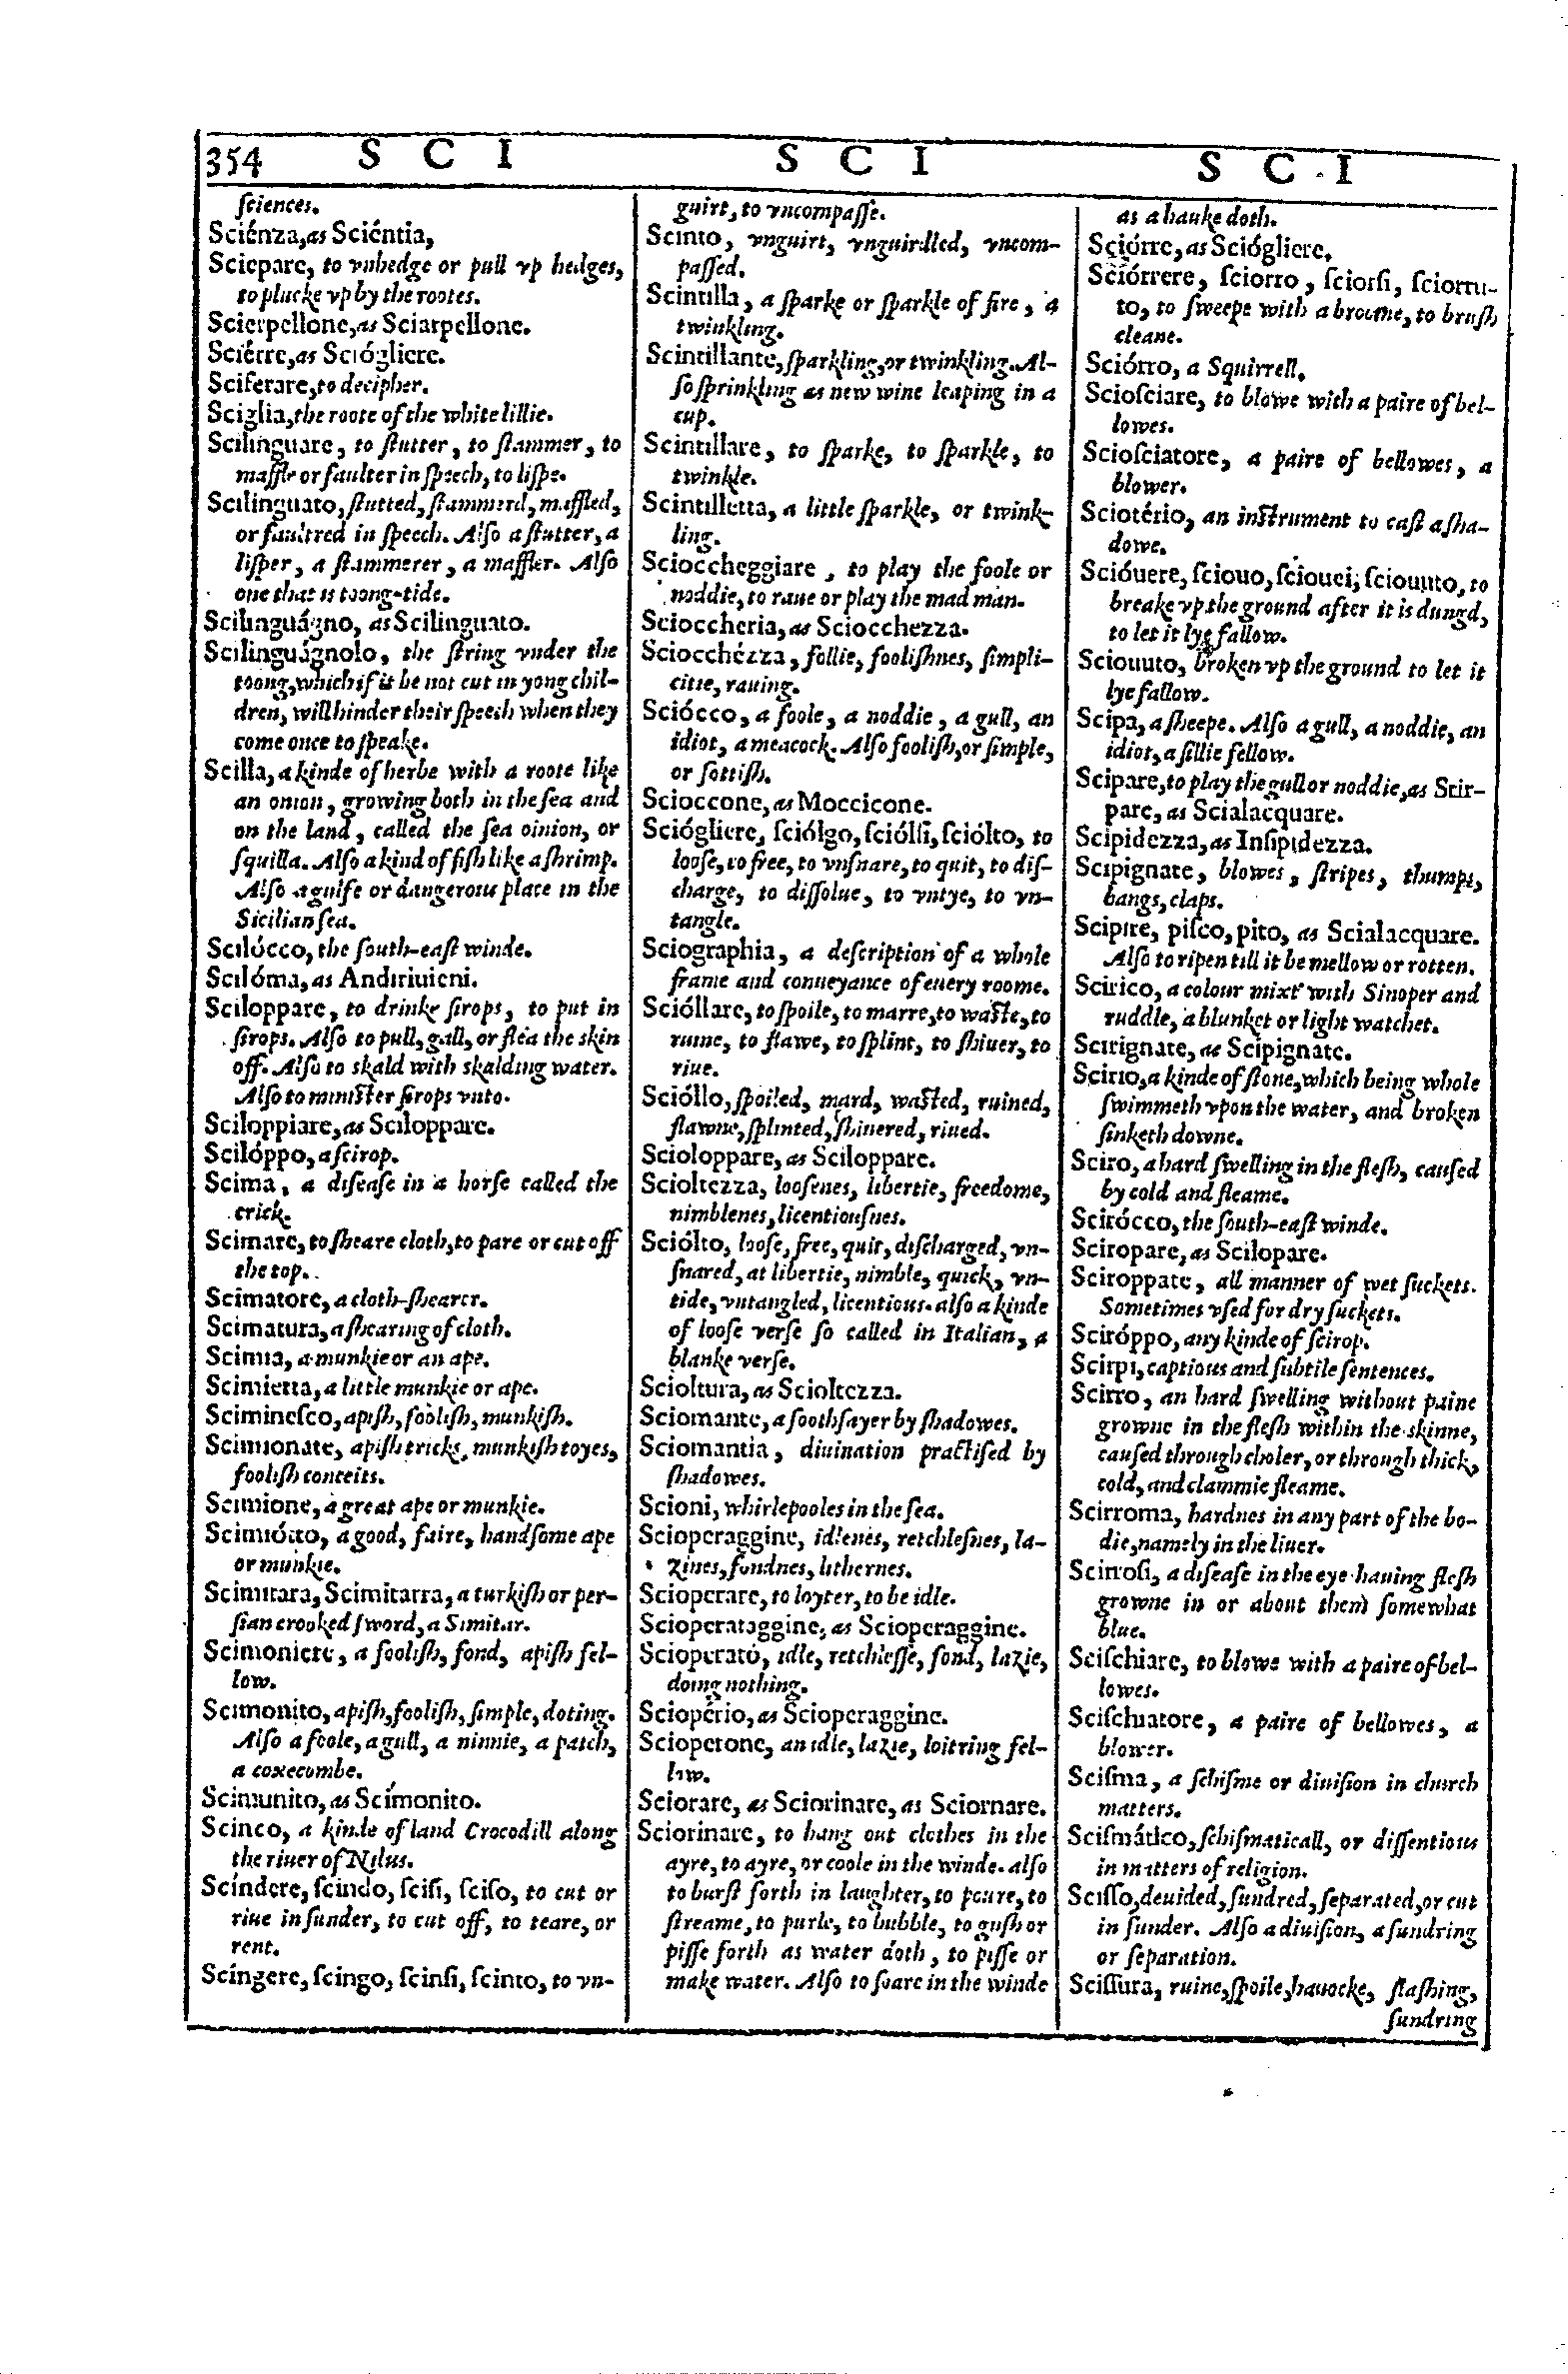 354 S C I S C I S C I
ſciences.
Sciénza, as Sciéntia,
Sciepare, to vnhedge or pull vp hedges,
to plucke vp by the rootes.
Scierpellone, as Sciarpellone.
Sciérre, as Sciógliere.
Sciferare, to decipher.
Sciglia, the roote of the white lillie.
Scilinguare, to ſtutter, to ſtammer, to
maffle or faulter in ſpeech, to liſpe.
Scilinguato, ſtutted, ſtammerd, maffled,
or faultred in ſpeech. Alſo a ſtutter, a
liſper, a ſtammerer, a maffler. Alſo
one that is toong-tide.
Scilinguágno, as Scilinguato.
Scilinguágnolo, the ſtring vnder the
toong, which if it be not cut in yong chil-
dren, will hinder their ſpeech when they
come once to ſpeake.
Scilla, a kinde of herbe with a roote like
an onion, growing both in the ſea and
on the land, called the ſea oinion, or
ſquilla. Alſo a kind of fiſh like a ſhrimp.
Alſo a gulfe or dangerous place in the
Sicilian ſea.
Scilócco, the ſouth-eaſt winde.
Scilóma, as Andiriuieni.
Sciloppare, to drinke ſirops, to put in
ſirops. Alſo to pull, gall, or flea the skin
off. Alſo to skald with skalding water.
Alſo to miniſter ſirops vnto.
Sciloppiare, as Sciloppare.
Scilóppo, a ſcirop.
Scima, a diſeaſe in a horſe called the
crick.
Scimare, to ſheare cloth, to pare or cut off
the top.
Scimatore, a cloth-ſhearer.
Scimatura, a ſhearing of cloth.
Scimia, a munkie or an ape.
Scimietta, a little munkie or ape.
Scimineſco, apiſh, fooliſh, munkiſh.
Scimionate, apiſh tricks, munkiſh toyes,
fooliſh conceits.
Scimione, a great ape or munkie.
Scimiótto, a good, faire, handſome ape
or munkie.
Scimitara, Scimitarra, a turkiſh or per-
ſian crooked ſword, a Simitar.
Scimoniere, a fooliſh, fond, apiſh fel-
low.
Scimonito, apiſh, fooliſh, ſimple, doting.
Alſo a foole, a gull, a ninnie, a patch,
a coxecombe.
Scimunito, as Scímonito.
Scinco, a kinde of land Crocodill along
the riuer of Nilus.
Scíndere, ſcindo, ſciſi, ſciſo, to cut or
riue in ſunder, to cut off, to teare, or
rent.
Scíngere, ſcingo, ſcinſi, ſcinto, to vn-
guirt, to vncompaſſe.
Scinto, vnguirt, vnguirdled, vncom-
paſſed.
Scintilla, a ſparke or ſparkle of fire, a
twinkling.
Scintillante, ſparkling, or twinkling. Al-
ſo ſprinkling as new wine leaping in a
cup.
Scintillare, to ſparke, to ſparkle, to
twinkle.
Scintilletta, a little ſparkle, or twink-
ling.
Scioccheggiare, to play the foole or
noddie, to raue or play the mad man.
Scioccheria, as Sciocchezza.
Sciocchézza, follie, fooliſhnes, ſimpli-
citie, rauing.
Sciócco, a foole, a noddie, a gull, an
idiot, a meacock. Alſo fooliſh, or ſimple,
or ſottiſh.
Scioccone, as Moccicone.
Sciógliere, ſciólgo, ſciólſi, ſciólto, to
looſe, to free, to vnſnare, to quit, to diſ-
charge, to diſſolue, to vntye, to vn-
tangle.
Sciographia, a deſcription of a whole
frame and conueyance of euery roome.
Scióllare, to ſpoile, to marre, to waſte, to
ruine, to flawe, to ſplint, to ſhiuer, to
riue.
Scióllo, ſpoiled, mard, waſted, ruined,
flawne, ſplinted, ſhiuered, riued.
Scioloppare, as Sciloppare.
Scioltezza, looſenes, libertie, freedome,
nimblenes, licentiouſnes.
Sciólto, looſe, free, quit, diſcharged, vn-
ſnared, at libertie, nimble, quick, vn-
tide, vntangled, licentious. alſo a kinde
of looſe verſe ſo called in Italian, a
blanke verſe.
Scioltura, as Scioltezza.
Sciomante, a ſoothſayer by ſhadowes.
Sciomantia, diuination practiſed by
ſhadowes.
Scioni, whirlepooles in the ſea.
Scioperaggine, idlenes, retchleſnes, la-
zines, fondnes, lithernes.
Scioperare, to loyter, to be idle.
Scioperataggine, as Scioperaggine.
Scioperato, idle, retchleſſe, fond, lazie,
doing nothing.
Sciopério, as Scioperaggine.
Scioperone, an idle, lazie, loitring fel-
low.
Sciorare, as Sciorinare, as Sciornare.
Sciorinare, to hang out clothes in the
ayre, to ayre, or coole in the winde. alſo
to burſt forth in laughter, to poure, to
ſtreame, to purle, to bubble, to guſh or
piſſe forth as water doth, to piſſe or
make water. Alſo to ſoare in the winde
as a hauke doth.
Sciórre, as Sciógliere.
Sciórrere, ſciorro, ſciorſi, ſciorru-
to, to ſweepe with a broome, to bruſh
cleane.
Sciórro, a Squirrell.
Scioſciare, to blowe with a paire of bel-
lowes.
Scioſciatore, a paire of bellowes, a
blower.
Sciotério, an inſtrument to caſt a ſha-
dowe.
Scióuere, ſciouo, ſciouei, ſciouuto, to
breake vp the ground after it is dungd,
to let it lye fallow.
Sciouuto, broken vp the ground to let it
lye fallow.
Scipa, a ſheepe. Alſo a gull, a noddie, an
idiot, a ſillie fellow.
Scipare, to play the gull or noddie, as Scir-
pare, as Scialacquare.
Scipidezza, as Inſipidezza.
Scipignate, blowes, ſtripes, thumps,
bangs, claps.
Scipire, piſco, pito, as Scialacquare.
Alſo to ripen till it be mellow or rotten.
Scirico, a colour mixt with Sinoper and
ruddle, a blunket or light watchet.
Scirignate, as Scipignate.
Scirio, a kinde of ſtone, which being whole
ſwimmeth vpon the water, and broken
ſinketh downe.
Sciro, a hard ſwelling in the fleſh, cauſed
by cold and fleame.
Scirócco, the ſouth-eaſt winde.
Sciropare, as Scilopare.
Sciroppate, all manner of wet ſuckets.
Sometimes vſed for dry ſuckets.
Sciróppo, any kinde of ſcirop.
Scirpi, captious and ſubtile ſentences.
Scirro, an hard ſwelling without paine
growne in the fleſh within the skinne,
cauſed through choler, or through thick,
cold, and clammie fleame.
Scirroma, hardnes in any part of the bo-
die, namely in the liuer.
Scirroſi, a diſeaſe in the eye hauing fleſh
growne in or about them ſomewhat
blue.
Sciſchiare, to blowe with a paire of bel-
lowes.
Sciſchiatore, a paire of bellowes, a
blower.
Sciſma, a ſchiſme or diuiſion in church
matters.
Sciſmático, ſchiſmaticall, or diſſentious
in matters of religion.
Sciſſo, deuided, ſundred, ſeparated, or cut
in ſunder. Alſo a diuiſion, a ſundring
or ſeparation.
Sciſſura, ruine, ſpoile, hauocke, ſlaſhing,
ſundring